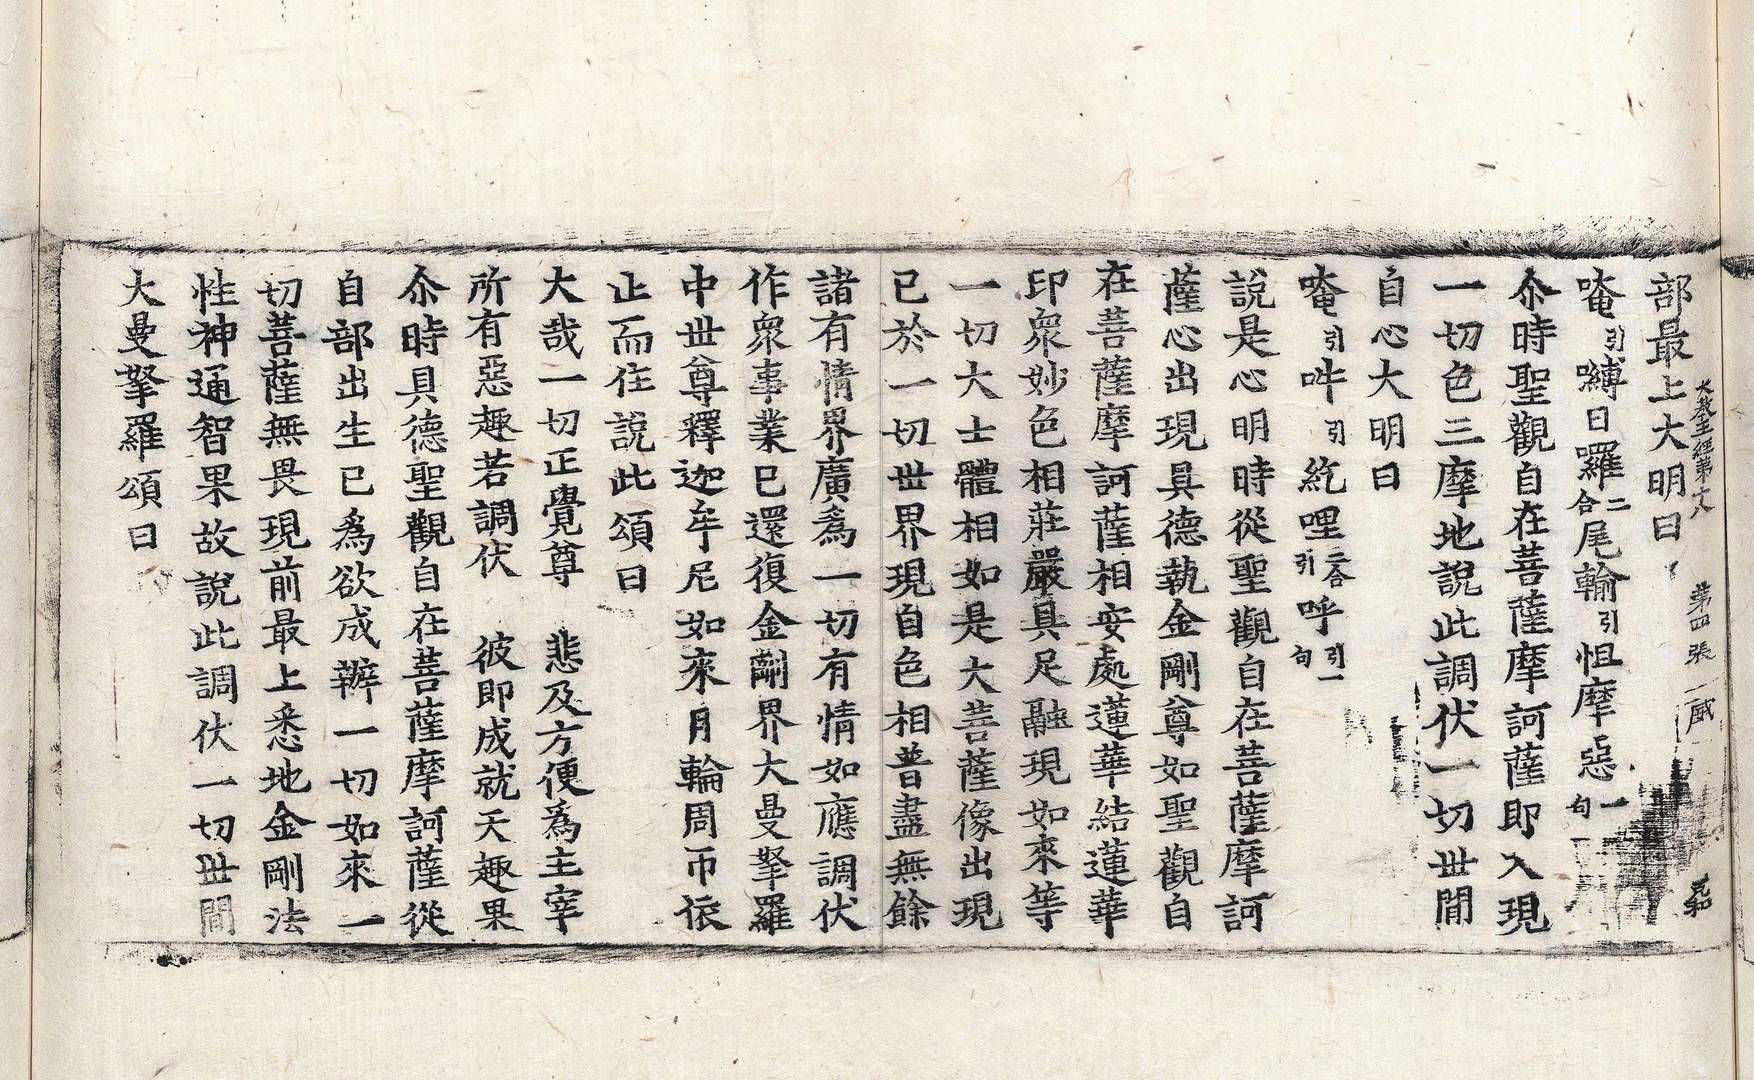 部最上大明曰
大教王經第十八 第四張 威
唵引嚩日囉二合尾輸引怛摩惡一句
尒時聖觀自在菩薩摩訶薩即入現
一切色三摩地說此調伏一切世間
自心大明曰
唵引吽引紇哩二合引呼引一句
說是心明時從聖觀自在菩薩摩訶
薩心出現具德執金剛尊如聖觀自
在菩薩摩訶薩相安處蓮華結蓮華
印衆妙色相莊嚴具足融現如來等
一切大士體相如是大菩薩像出現
已於一切世界現自色相普盡無餘
諸有情界廣爲一切有情如應調伏
作衆事業已還復金剛界大曼拏羅
中世尊釋迦牟尼如來月輪周帀依
止而住說此頌曰
大哉一切正覺尊 悲及方便爲主宰
所有惡趣若調伏 彼即成就天趣果
尒時具德聖觀自在菩薩摩訶薩從
自部出生已爲欲成辦一切如來一
切菩薩無畏現前最上悉地金剛法
性神通智果故說此調伏一切世間
大曼拏羅頌曰